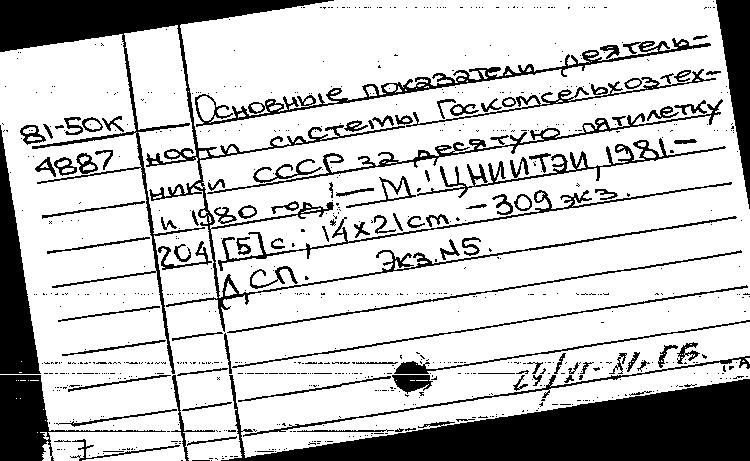 Основные показатели деятель-
81-50К
4887
ности системы Госкомсельхозтех-
ники СССР за десятую пятилетку
и 1980 год. — М.: ЦНИИТЭИ, 1981.—
204 [5] с.; 14х21 cm. – 309 экз.
ДСП. Экз. N5.
24/ - 81. ГБ.